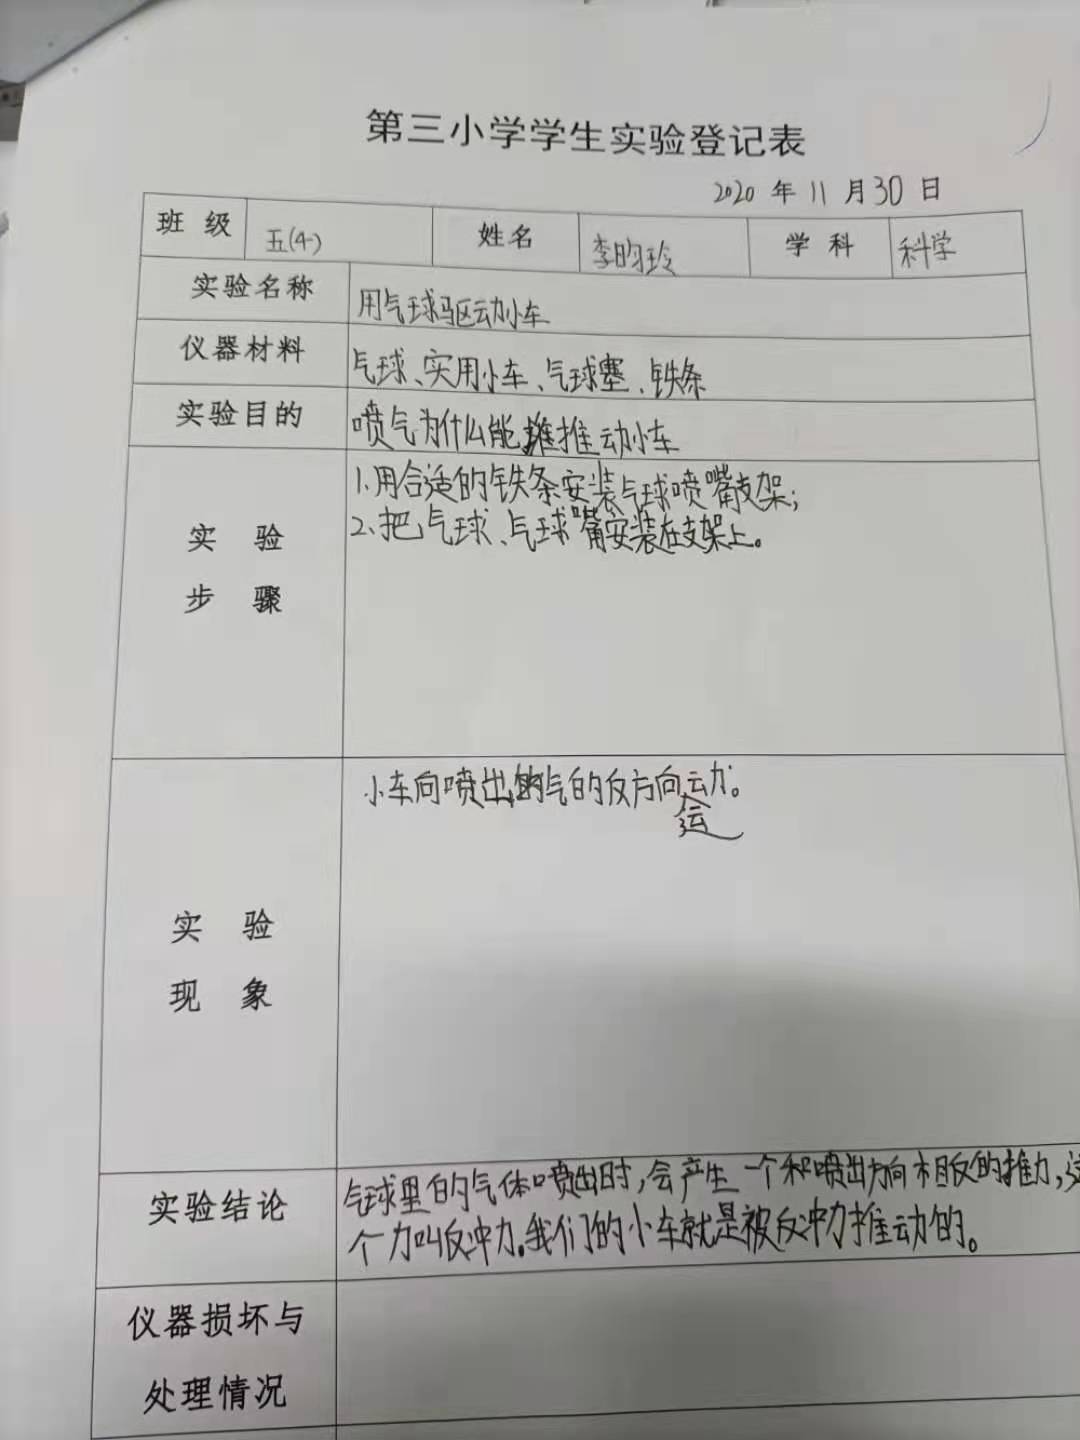 第三小学学生实验登记表
2020 年 11 月 30 日
班 级 五(4) 姓名 李昀玲 学 科 科学
实验名称 用气球驱动小车
仪器材料 气球、实用小车、气球塞、铁条
实验目的 喷气为什么能推动小车
实 验 步 骤
1.用合适的铁条安装气球喷嘴支架;
2.把气球、气球嘴安装在支架上。
实 验 现 象
小车向喷出的气的反方向运动。
实验结论
气球里的气体喷出时,会产生一个和喷出方向相反的推力,这
个力叫反冲力。我们的小车就是被反冲力推动的。
仪器损坏与
处理情况